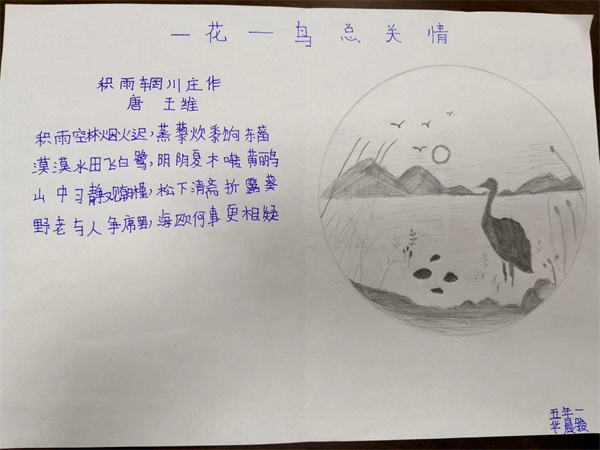 一花一鸟总关情
积雨辋川庄作
唐 王维
积雨空林烟火迟,蒸藜炊黍饷东菑
漠漠水田飞白鹭,阴阴夏木啭黄鹂
山中习静观朝槿,松下清斋折露葵
野老与人争席罢,海欧何事更相疑
五年一
华晨骏